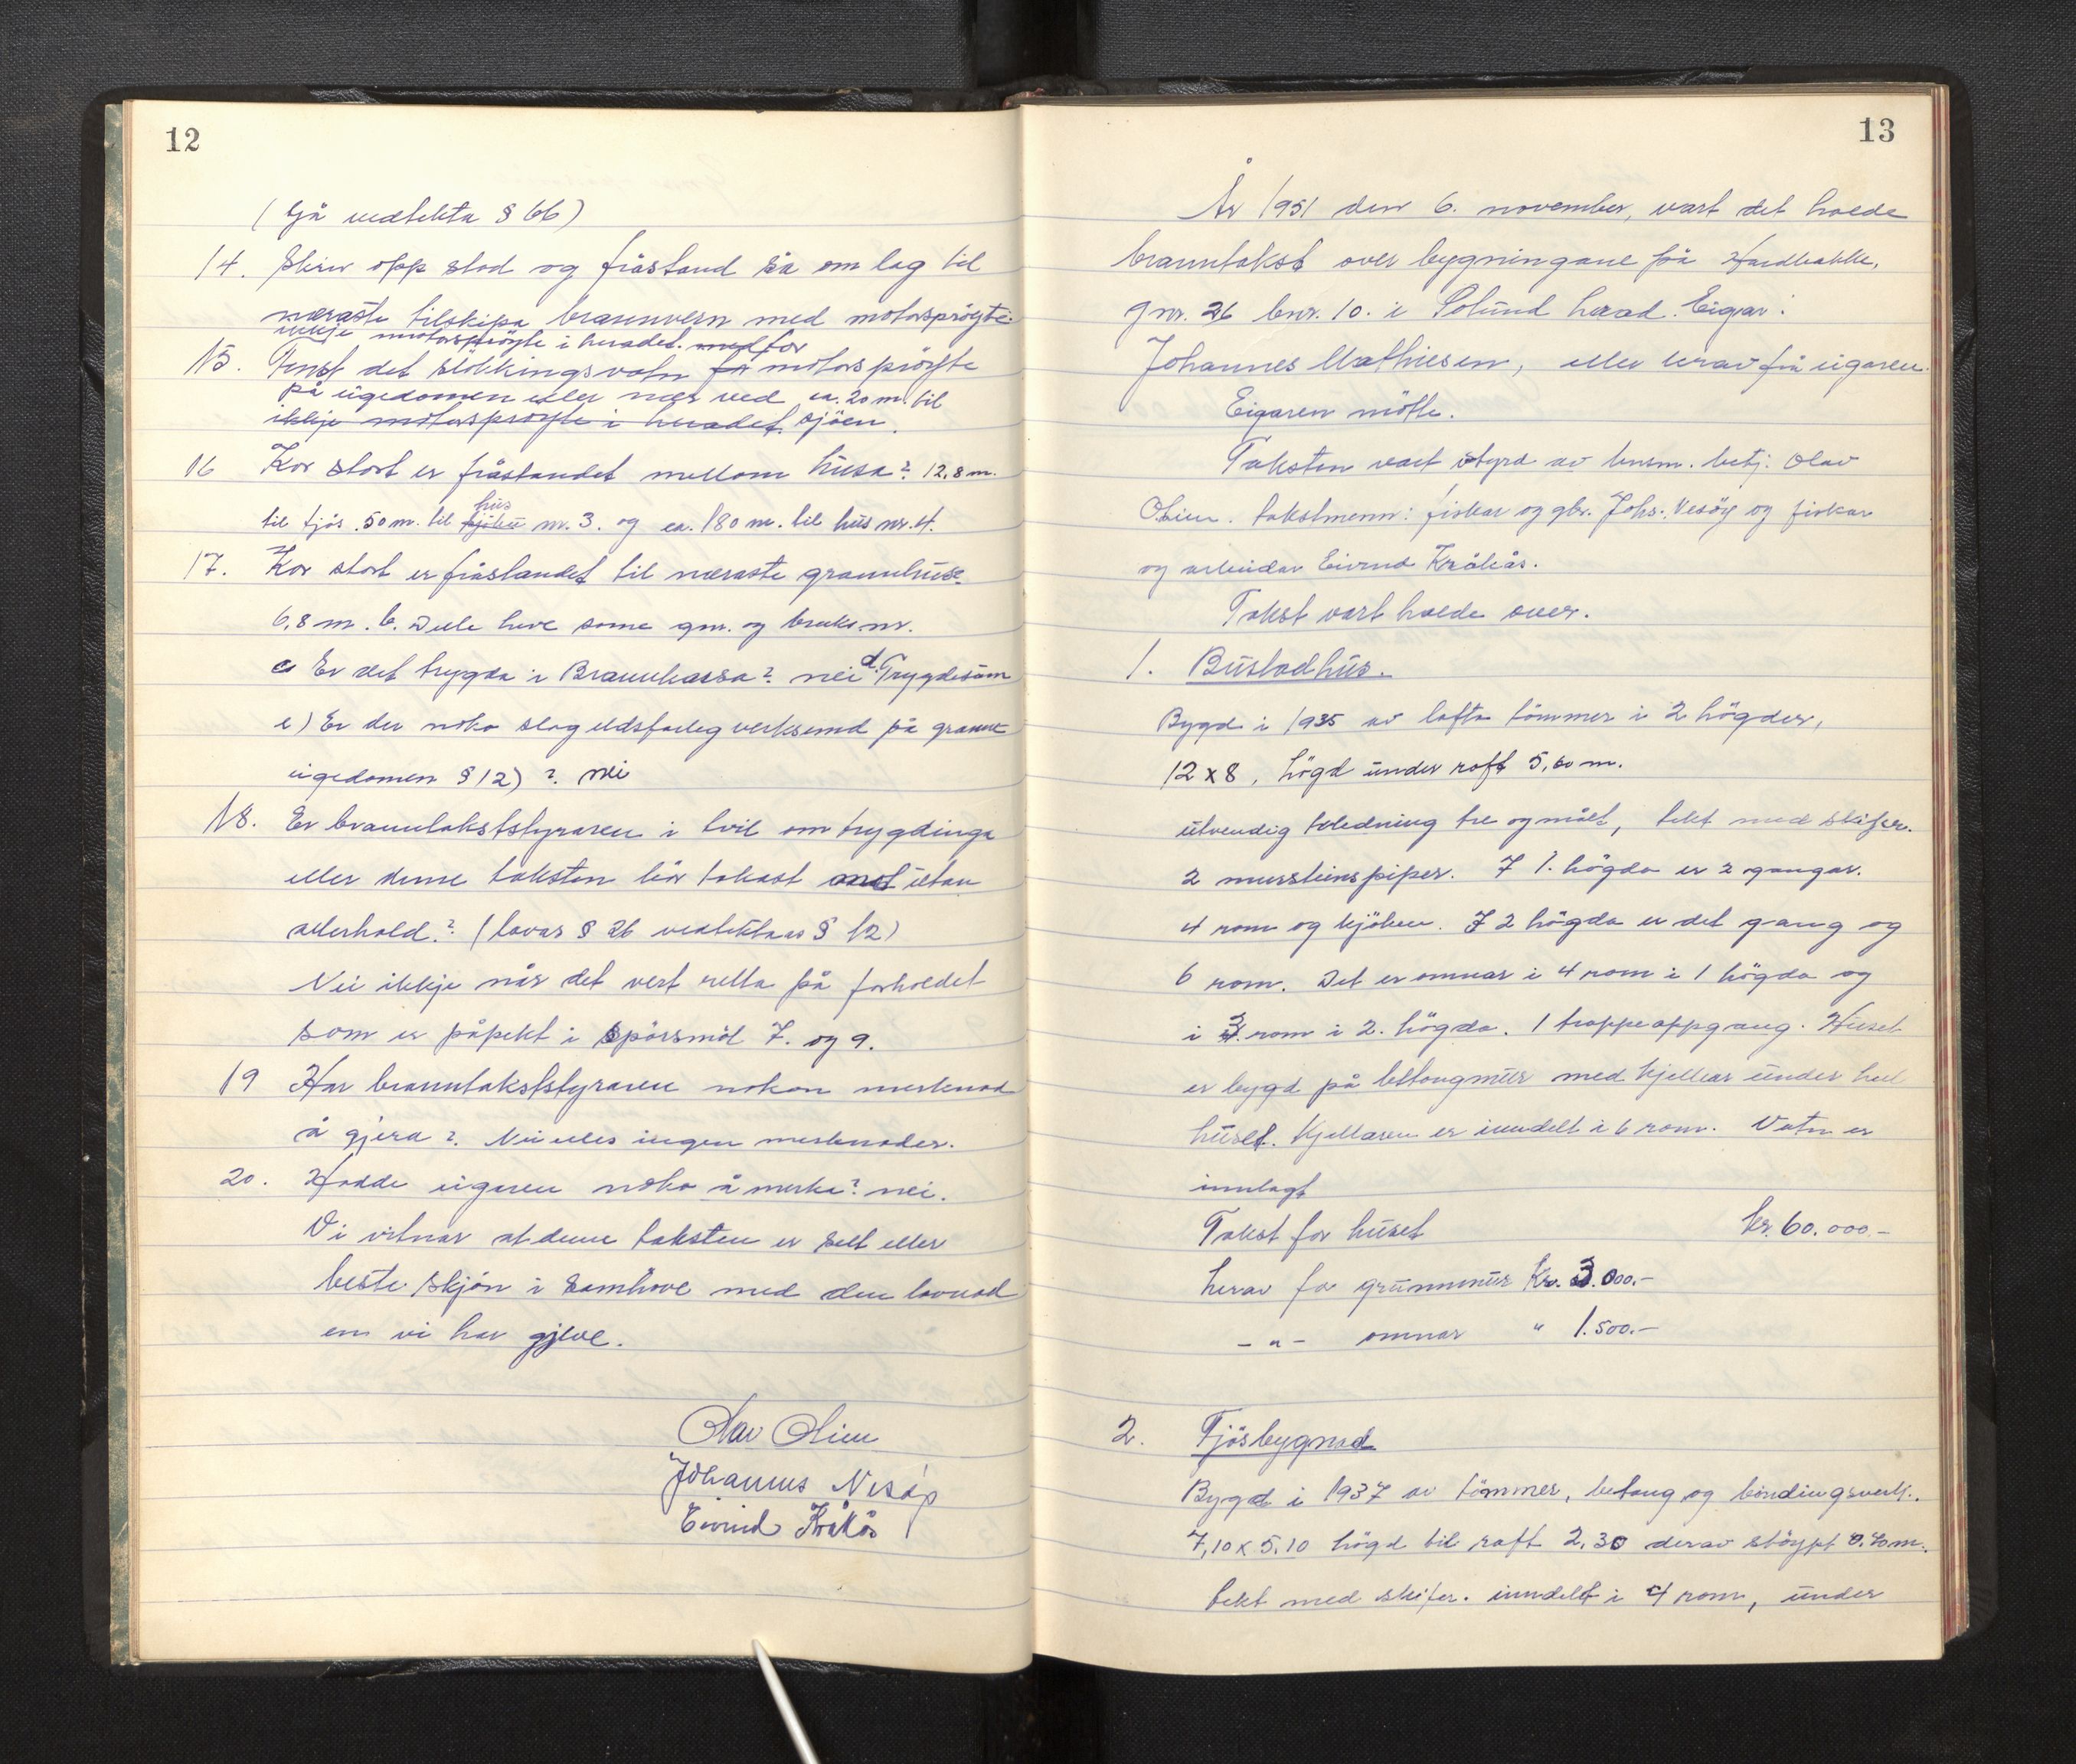 12
( Sjå vedtekta § 66)
14. Skriv opp stad og fråstand så om lag til
næraste tilskipa brannvern med motorsprøyte:
ikkje motorsprøyte i heradet. med for
15. Finst det slökkingsvatn for motorsprøyte
på eigedomen eller nær ved ca. 20 m. til
ikkje motorsprøyte i heradet. sjöen.
16 Kor stort er fråstandet mellom husa? 12,8 m.
til fjös. 50 m. til hus nr. 3. og ca. 180 m. til hus nr. 4.
17. Kor stort er fråstandet til næraste grannhus.
6,8 m. b. Dele heve same gnr. og bruksnr.
c Er det trygda i Brannkassa? nei d. Trygdesum
e) Er der noko slag eldsfarleg verksemd på granne
eigedomen § 12) ? nei
18. Er branntakststyraren i tvil om trygdinga
eller denne taksten bör takast mot utan
atterhald.? (lovas § 26 vedtektaas § 12)
Nei ikkje når det vert retta på forholdet
som er påpekt i spörsmål 7. og 9.
19 Har branntakststyraren nokon merknad
å gjera?. Nei elles ingen merknader.
20. Hadde eigaren noko å merke? nei.
Vi vitnar at denne taksten er sett etter
beste skjön i samhöve med den lovnad
en vi har gjeve.
Olav Olien
Johannes Vesöy
Eivind Kråkås
13
År 1951 den 6. november, vart det halde
branntakst over bygningane på Hardbakke,
gnr. 26 bnr. 10. i Solund herad. Eigar:
Johannes Mathiesen, etter krav frå eigaren.
Eigaren mötte.
Taksten vart styrd av lensm. betj. Olav
Olien. takstmenn: fiskar og gbr. Johs. Vesöy og fiskar
og arbeidar Eivind Kråkås.
Takst vart halde over.
1. Bustadhus.
Bygd i 1935 av lafta tömmer i 2 högder,
12 x 8, högd under raft 5,60 m.
utvendig kledning tre og målt, tekt med skifer.
2 mursteinspiper. I 1. högda er 2 gangar.
4 rom og kjöken. I 2 högda er det gang og
6 rom. Det er omnar i 4 rom i 1 högda og
i 3 rom i 2. högda. 1 trappeoppgang. Huset
er bygd på betongmur med kjellar under heile
huset. Kjellaren er inndelt i 6 rom. Vatn er
innlagt
Takst for huset kr. 60.000.-
herav for grunnmur Kr. 3.000.-
- " - omnar " 1.500.-
2. Fjösbygnad
Bygd i 1937 av tömmer, betong og bindingsverk.
7,10 x 5.10 högd til raft 2,30 derav stöypt 0.40 m.
tekt med skifer. inndelt i 4 rom, under